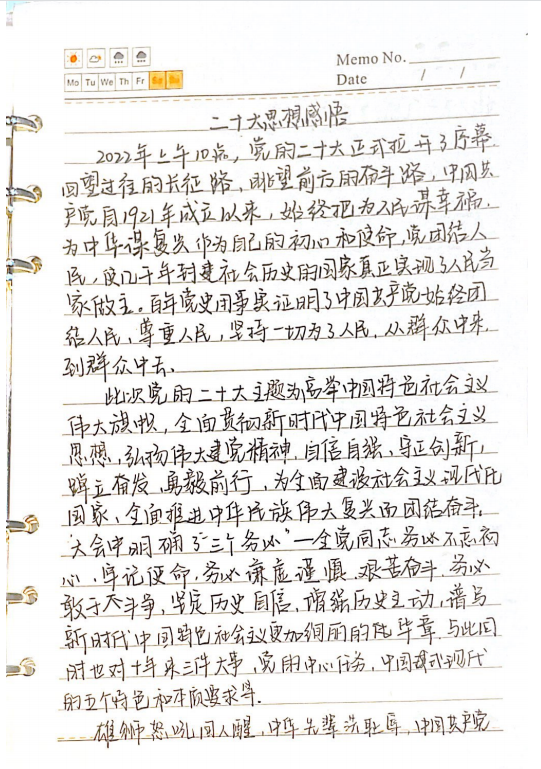 Memo No.
Mo Tu We Th Fr Sa Su
Date / /
二十大思想感悟
2022年上午10点，党的二十大正式拉开了序幕.
回望过往的长征路，眺望前方的奋斗路，中国共
产党自1921年成立以来，始终把为人民谋幸福.
为中华谋复兴作为自己的初心和使命，党团结人
民，使几千年封建社会历史的国家真正实现了人民当
家做主。百年党史用事实证明了中国共产党始终团
结人民，尊重人民，坚持一切为了人民，从群众中来，
到群众中去.
此次党的二十大主题为高举中国特色社会主义
伟大旗帜，全面贯彻新时代中国特色社会主义
思想，弘扬伟大建党精神，自信自强、守正创新，
踔立奋发、勇毅前行，为全面建设社会主义现代化
国家、全面推进中华民族伟大复兴而团结奋斗.
大会中明确了“三个务必”—全党同志务必不忘初
心，牢记使命，务必谦虚谨慎、艰苦奋斗，务必
敢于斗争，坚定历史自信，增强历史主动，谱写
新时代中国特色社会主义更加绚丽的华章，与此同
时也对十年来三件大事，党的中心任务，中国式现代
的五个特色和本质要求等.
雄狮怒吼国人醒，中华先辈洗耻辱，中国共产党